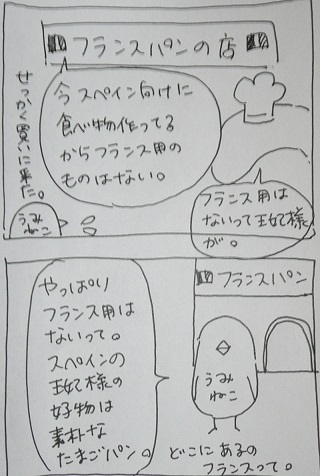 フランスパンの店
今スペイン向けに
食べ物作ってる
からフランス用の
ものはない。
フランス用は
ないって王妃様
が。
せっかく買いに来た。
うみ
ねこ
フランスパン
うみ
ねこ
やっぱり
フランス用は
ないって。
スペインの
王妃様の
好物は
素朴な
たまごパン。
どこにあるの
フランスって。